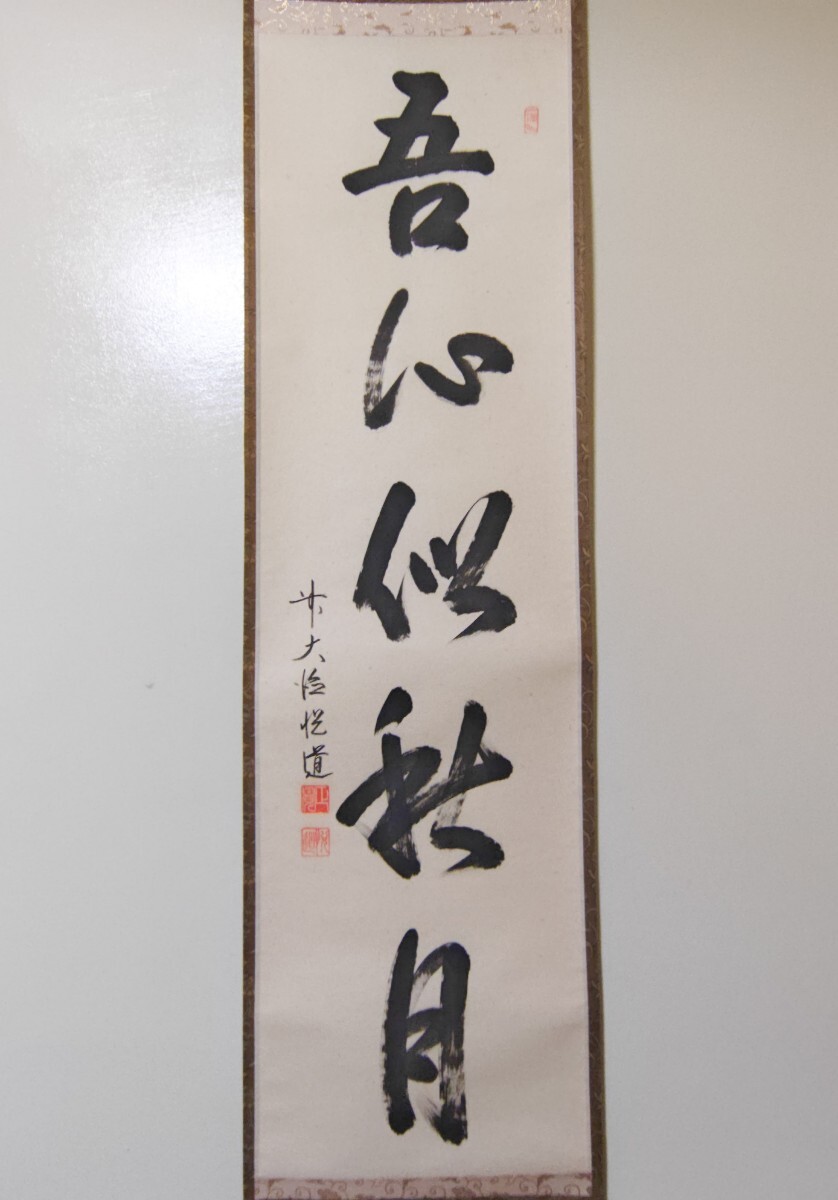 吾心似秋月
大徳悦道